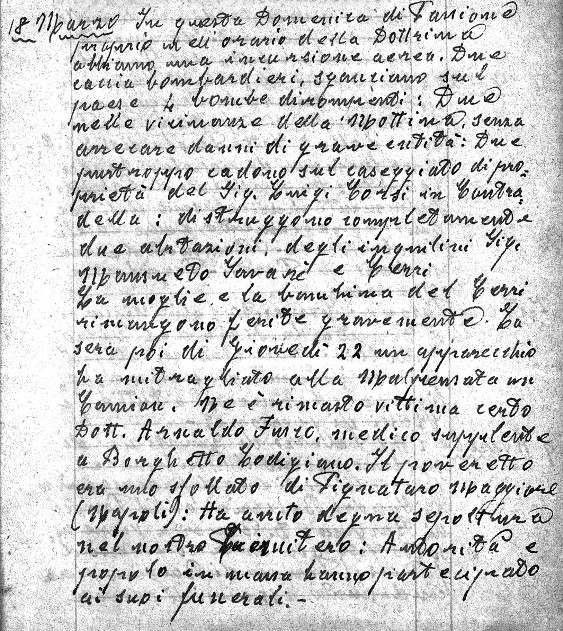 18 Marzo In questa Domenica di Passione
proprio nell'orario della Dottrina
abbiamo una incursione aerea. Due
caccia bombardieri, sganciano sul
paese 4 bombe dirompenti: Due
nelle vicinanze della Mottina, senza
arrecare danni di grave entità: Due
purtroppo cadono sul caseggiato di pro-
prietà del Sig. Luigi Corsi in Contra-
della: distruggono completamente
due abitazioni, degli inquilini Sig.
Mansueto Savarè e Cerri
La moglie e la bambina del Cerri
rimangono ferite gravemente. La
sera poi di Giovedì 22 un apparecchio
ha mitragliato alla Malpensata un
Camion. Ne è rimasto vittima certo
Dott. Arnaldo Fusco, medico supplente
a Borghetto Lodigiano. Il poveretto
era uno sfollato di Pignataro Maggiore
(Napoli): Ha avuto degna sepoltura
nel nostro Cimitero: Autorità e
popolo in massa hanno partecipato
ai suoi funerali.-